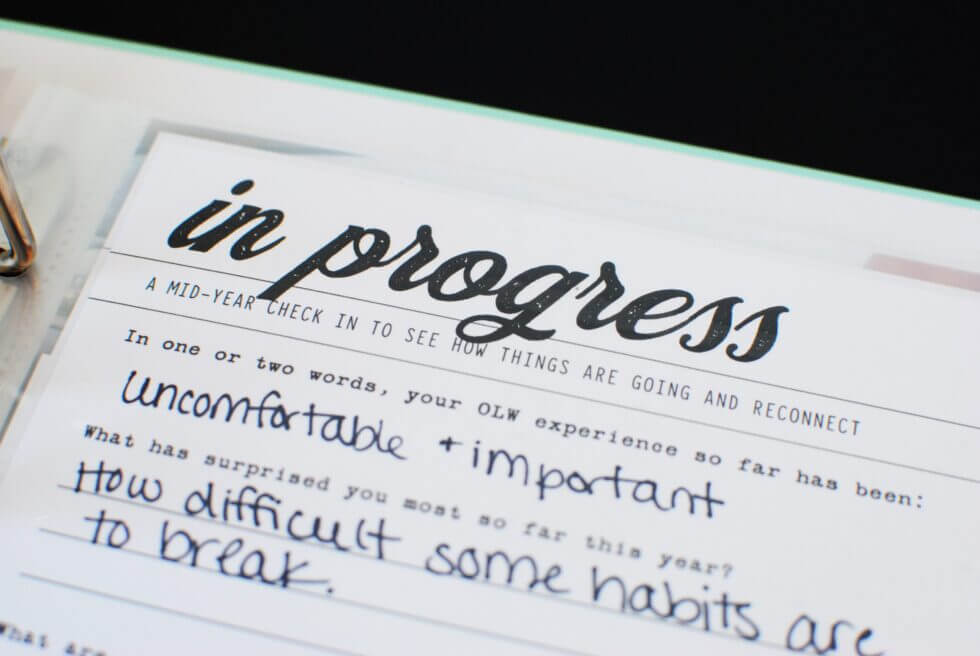 in progress
A MID-YEAR CHECK IN TO SEE HOW THINGS ARE GOING AND RECONNECT
In one or two words, your OLW experience so far has been:
uncomfortable + important
What has surprised you most so far this year?
How difficult some habits are
to break.
What are